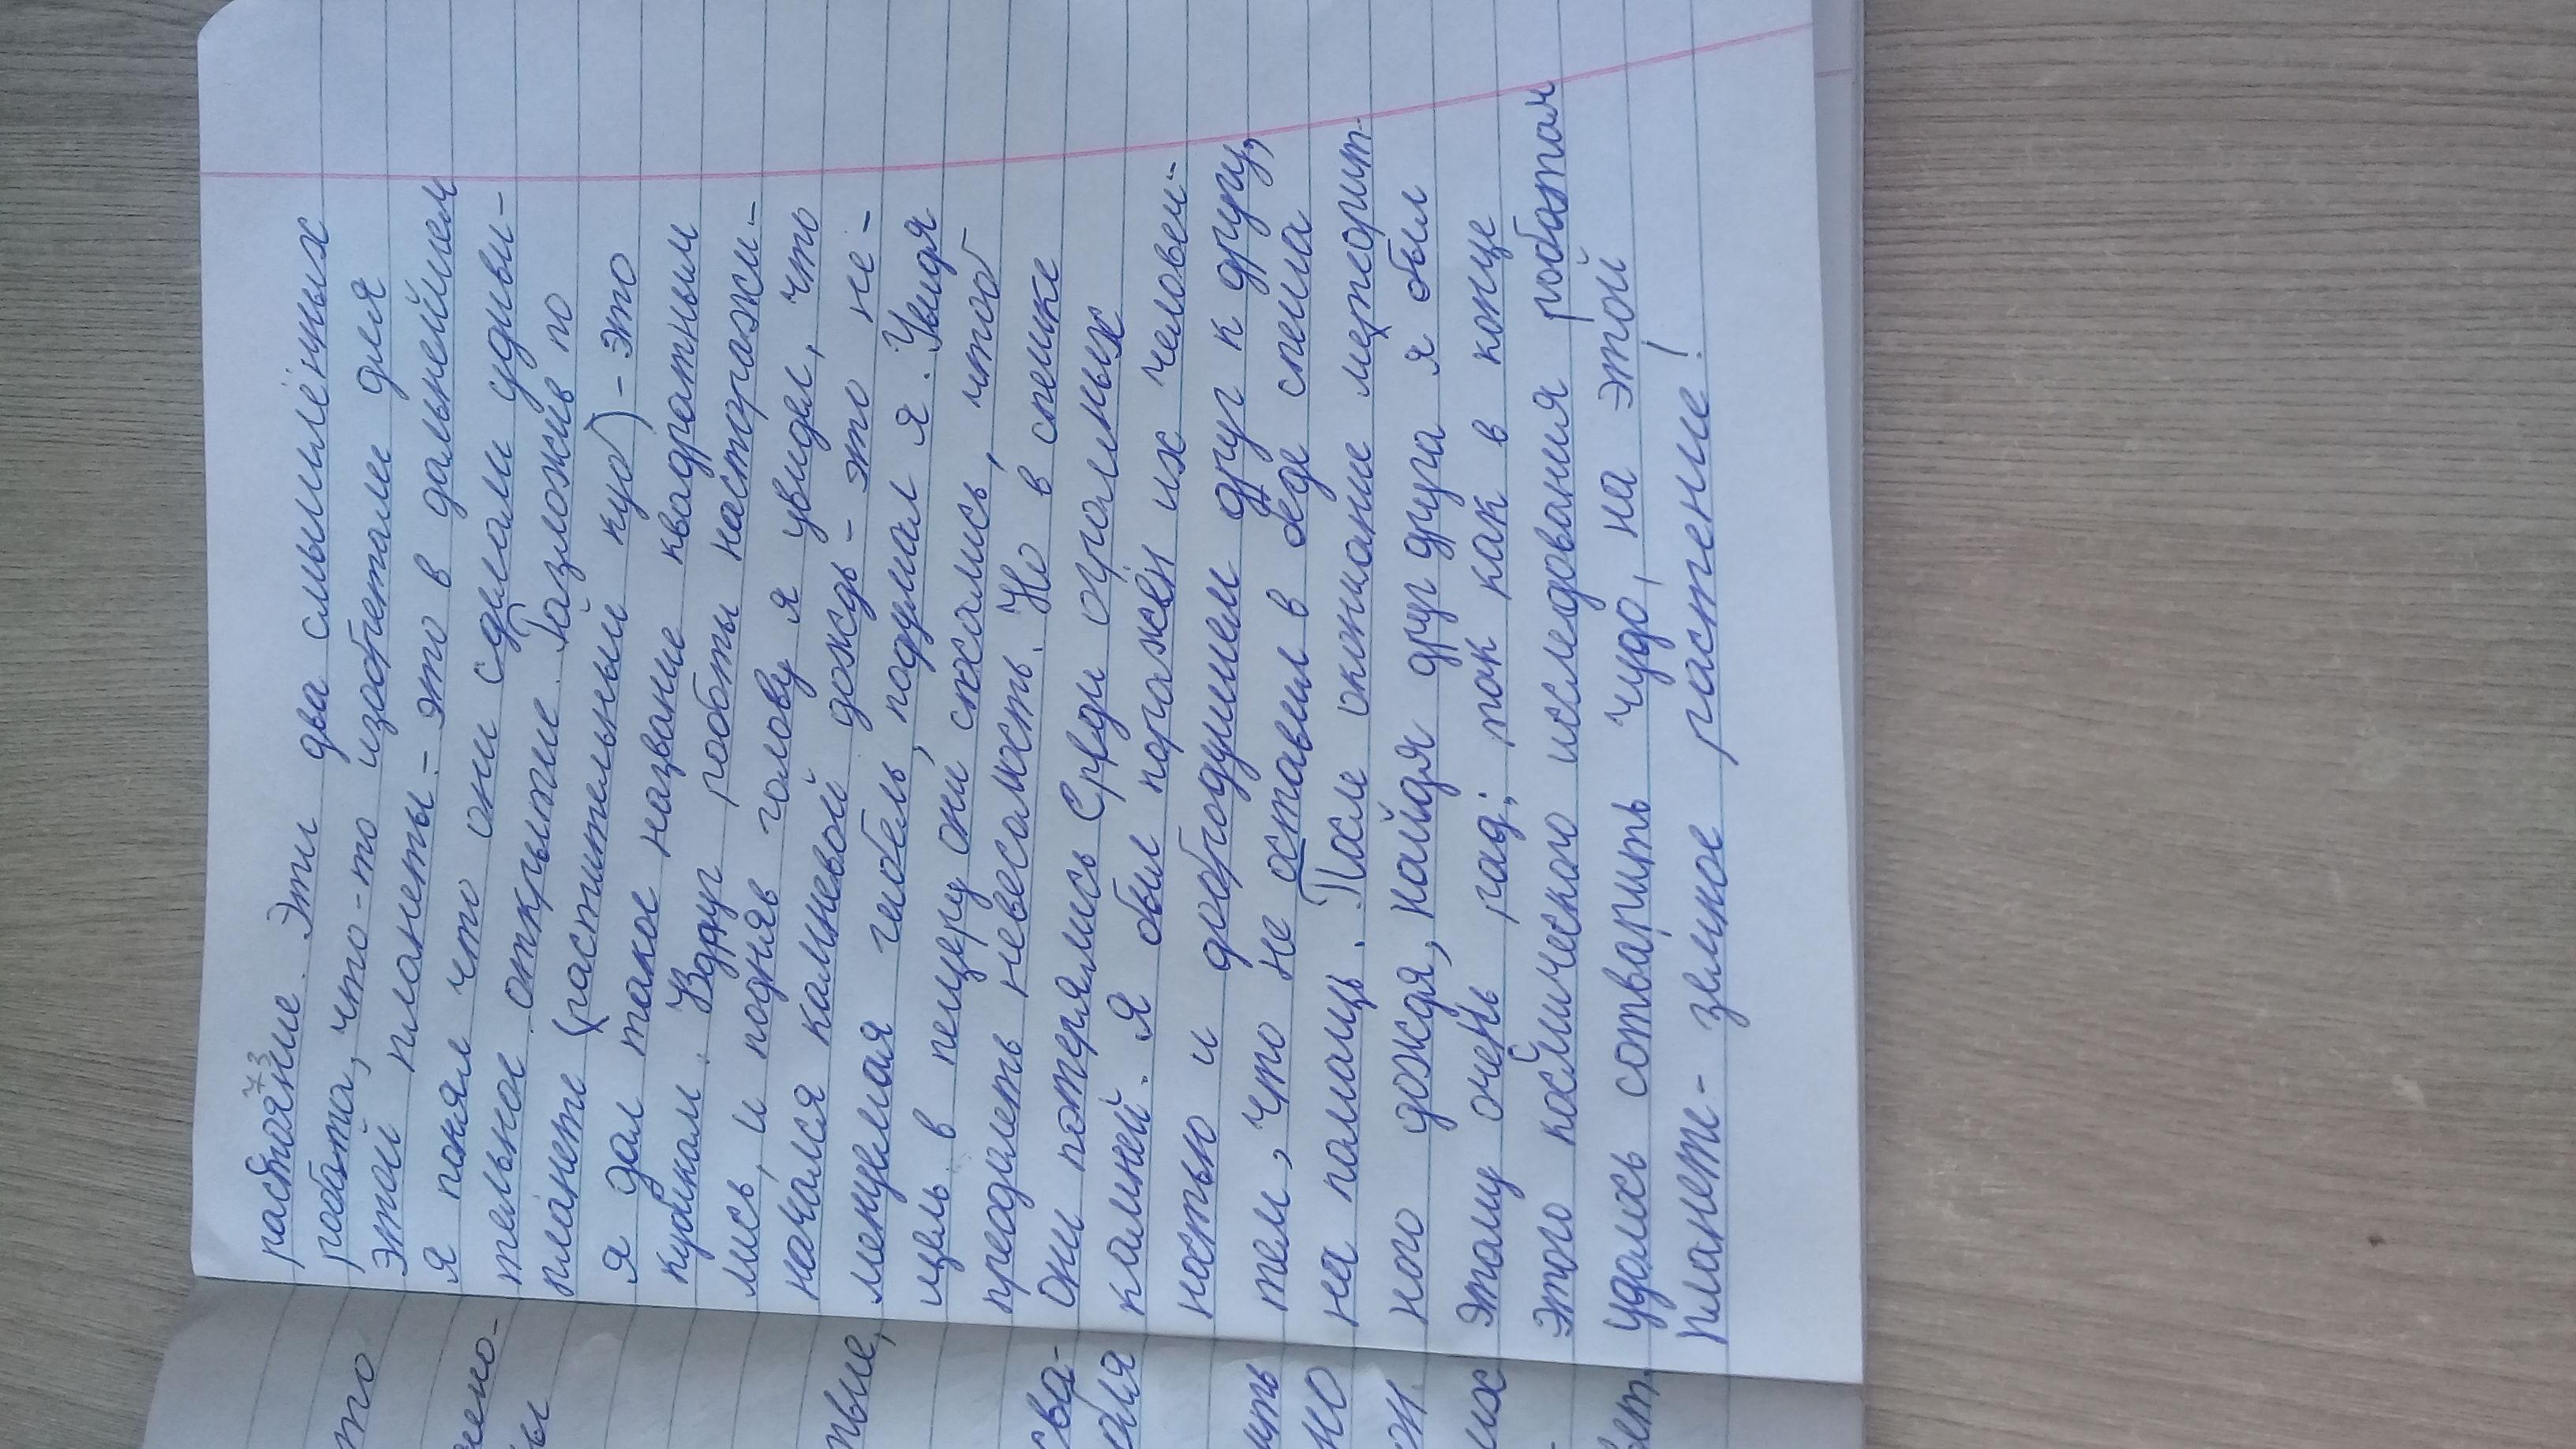 растояние. Эти два смышлённых
робата, что-то изобретали для
этой планеты - это в дальнейшем
я понял что они сделали удиви-
тельное открытие. Разложив по
планете (растительный куб) - это
я дал такое название квадратным
кубикам. Вдруг роботы насторажи-
лись, и подняв голову я увидел, что
начался камневой дождь - это не-
менуемая гибель, подумал я. Увидя
щель в пещеру они сжались, чтоб
преодалеть невесомость. Но в спешке
они потерялись Среди огромных
камней. Я был поражён их человеч-
ностью и доброодушием друг к другу,
тем, что не оставил в беде спеша
на помащь. После окончание метеорит-
ного дождя, найдя друг друга я был
этому очень рад; так как в конце
этого косСмического исследования робатам
удалсь сотварить чудо, на этой
планете - земное растение!
то
сно-
ы
тые,
сва-
ить
но
их